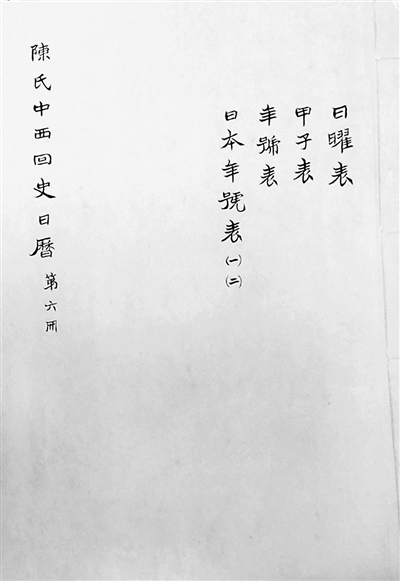 日曜表
甲子表
年號表
日本年號表㈠㈡
陳氏中西回史日曆 第六册